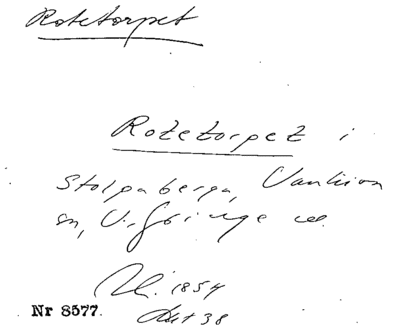 Rotetorpet
Rotetorpet i
Stolpaberga, Vankiva
sn, V. Göinge
1854
Nr 8577.
38